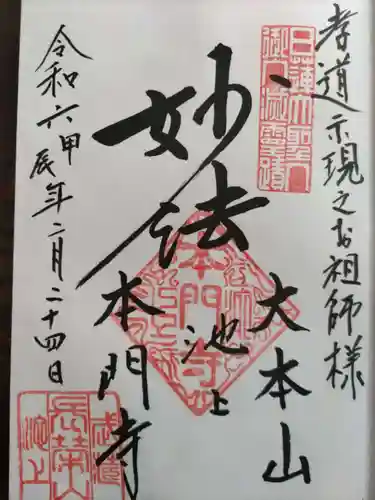 孝道示現之お祖師様
日蓮大聖人
御入滅霊蹟
大本山
池上
妙法
本門寺
令和六甲辰年二月二十四日